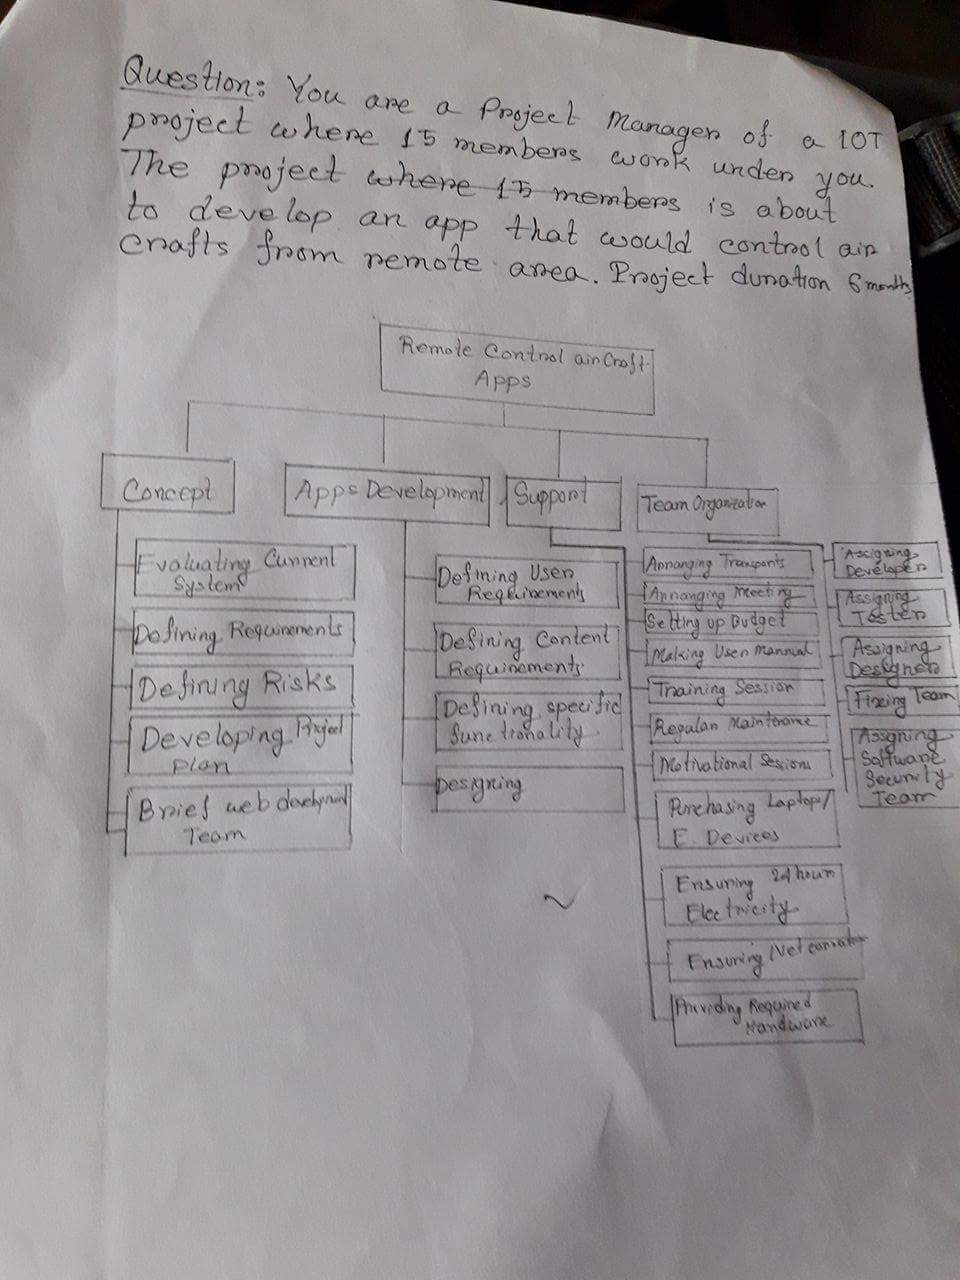 Question: You are a Project Manager of a IOT
project where 15 members work under you.
The project where 15 members is about
to develop an app that would control air
crafts from remote area. Project duration 6 months
Remote Control air Craft
Apps
Concept
Apps Development
Support
Team Organization
Evaluating Current
System
Defining Requirements
Defining Risks
Developing Project
Plan
Brief web development
Team
Defining User
Requirements
Defining Content
Requirements
Defining specific
functionality
Designing
Arranging Transports
Arranging Meeting
Setting up Budget
Making User Mannual
Training Session
Regular Maintenance
Motivational Sessions
Purchasing Laptops/
E. Devices
Ensuring 24 hour
Electricity
Ensuring Net
Providing Required
Hardware
Assigning
Developer
Assigning
Tester
Assigning
Designer
Fixing Team
Assigning
Software
Security
Team